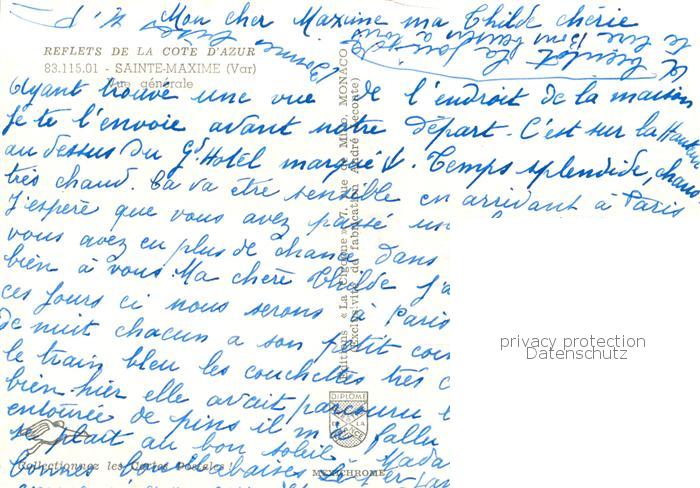 Mon cher Maxime ma Thilde chérie
REFLETS DE LA COTE D'AZUR
83.115.01 - SAINTE-MAXIME (Var)
Vue générale
Ayant trouvé une vue de l'endroit de la maison
je te l'envoie avant notre départ. C'est sur la Hauteur
au dessus du Gd Hotel marqué ↓. Temps splendide, chaud
très chaud. Ca va être sensible en arrivant à Paris
J'espère que vous avez passé
vous avez eu plus de chance dans
bien à vous Ma chère Thilde
ces jours ci nous serons à Paris
de nuit chacun a son petit
le train bleu les couchettes très
bien hier elle avait parcouru
entourée de pins il m'a fallu
se plait au bon soleil Mada
bonnes bouillabaisses
Collectionnez les Cartes Postales !
MEXICHROME
DIPLOME
Editions « La Cigogne » 7, rue de Millo, MONACO
Exclusivité de fabrication André Leconte)
privacy protection
Datenschutz